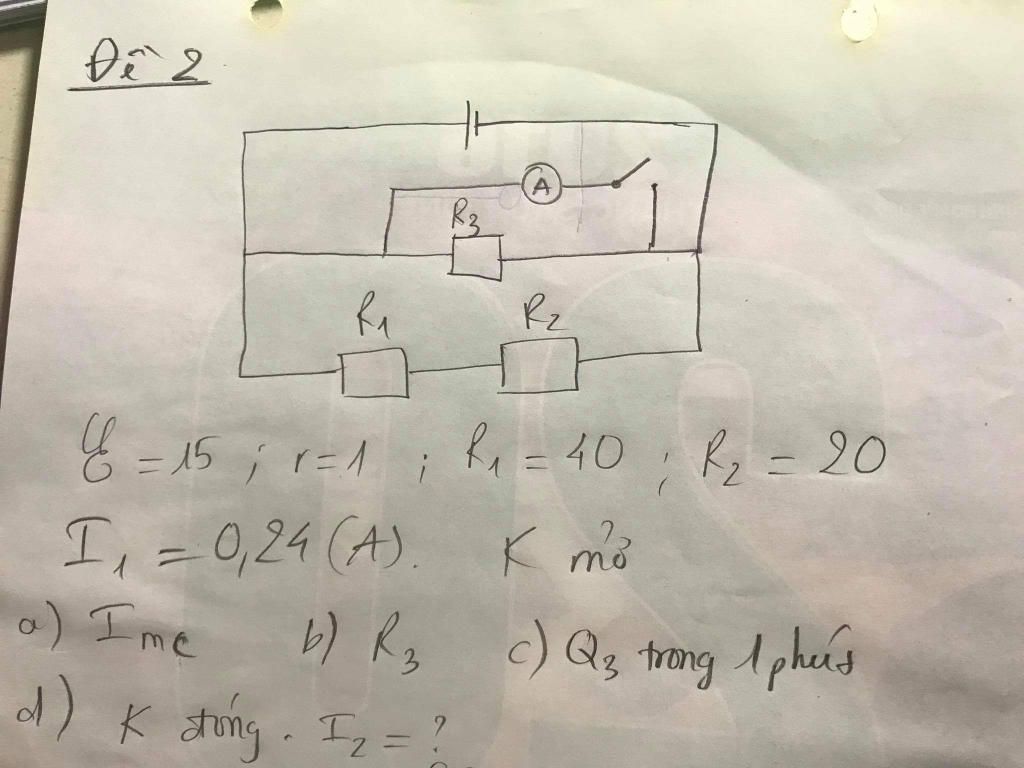 Đề 2
A
R3
R1 R2
ℰ = 15 ; r = 1 ; R1 = 40 ; R2 = 20
I1 = 0,24 (A). K mở
a) Imc b) R3 c) Q3 trong 1 phút
d) K đóng. I2 = ?